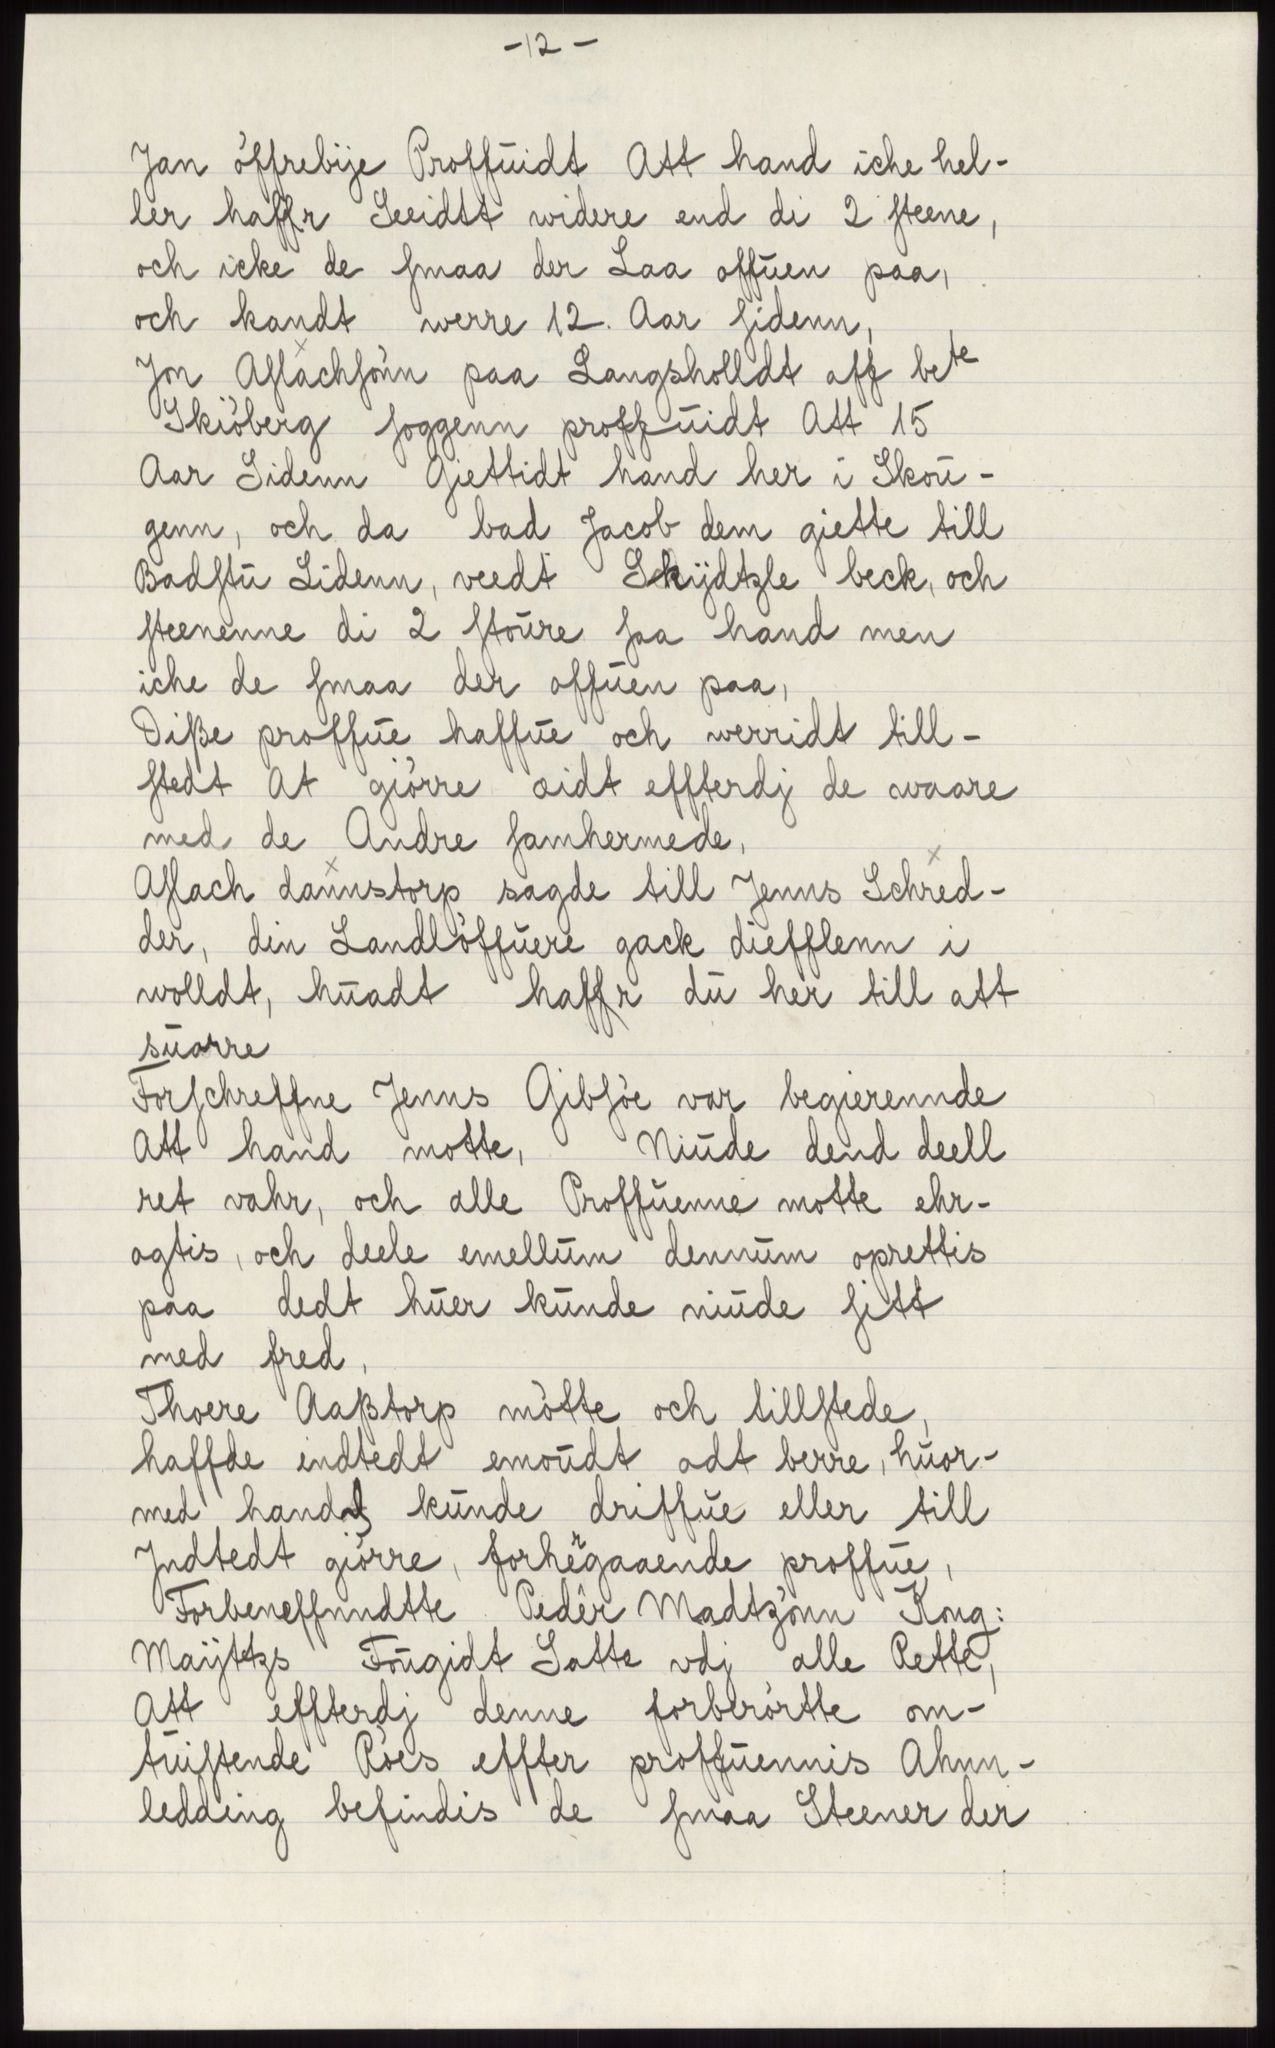 -12-
Jan öffrebije Proffūidt Att hand iche hel-
ler haffr Seeidtt widere end di 2 steene,
och icke de smaa der Laa offūen paa,
och kandt werre 12. Aar sidenn,
Jon Aslachsönn paa Langsholldt aff bete
Skiöberg soggenn proffūidt Att 15
Aar Sidenn Giettidt hand her i Skoū-
genn, och da bad Jacob dem giette till
Badstū Lidenn, veedt Skijdtzle beck, och
steenenne di 2 stoūre saa hand men
iche de smaa der offūen paa,
Diße proffūe haffūe och werridt till-
stedt At giörre eidt effterdj de waare
med de Andre samhermede,
Aslach dannstorp sagde till Jenns Schred-
der, din Landlöffūere gack diefflenn i
wolldt, hūadt haffr dū her till att
sūarre
Forschreffne Jenns Gibsöe var begierennde
Att hand motte, Niūde dend deell
ret vahr, och alle Proffūenne motte ehr-
agtis, och deele emellūm dennūm oprettis
paa dedt hūer kūnde niūde sitt
med fred,
Thoere Aaßtorp mötte och tillstede,
haffde indtedt emoūdt adt berre, hūor-
med hand kūnde driffūe eller till
Jndtedt giörre, forhegaaende proffūe,
Forbeneffnndtte Peder Madtzönn Kong:
Maÿttzs Foūgidt Satte vdj alle Rette,
Att effterdj denne forberörtte om-
tūistende Röes effter proffūennis Ahnn-
ledding befindis de smaa Steener der